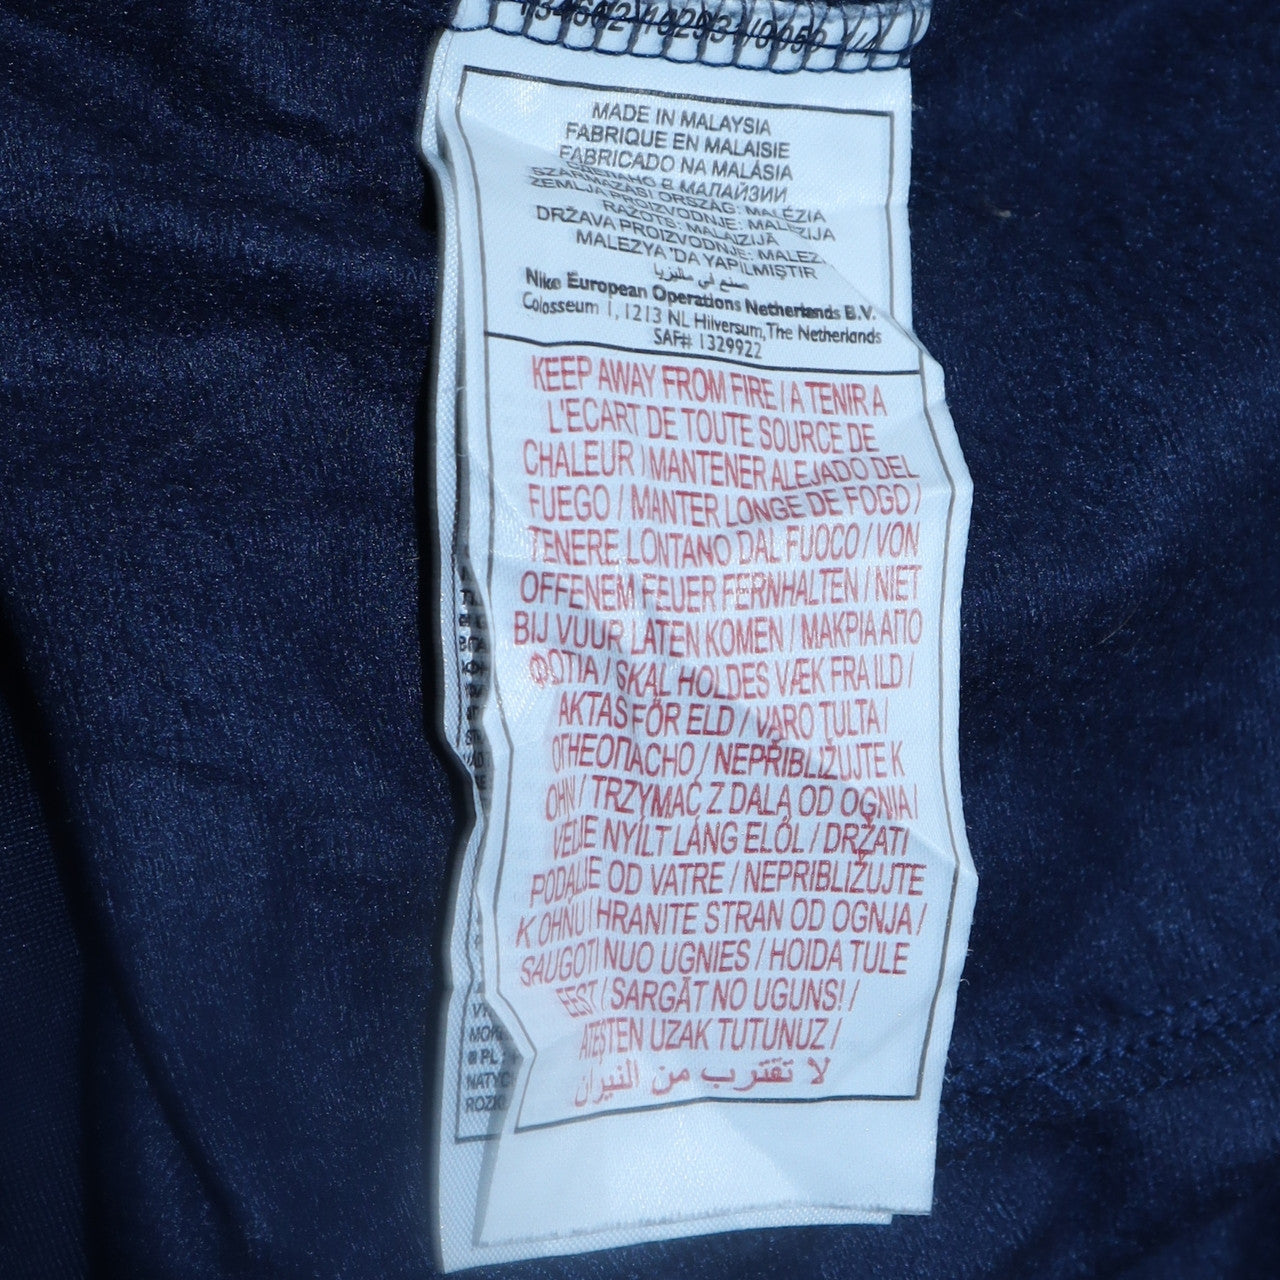 MADE IN MALAYSIA
FABRIQUE EN MALAISIE
FABRICADO NA MALÁSIA
СДЕЛАНО В МАЛАЙЗИИ
SZÁRMAZÁSI ORSZÁG: MALÉZIA
ZEMLJA PROIZVODNJE: MALEZIJA
RAŽOTS: MALAIZIJĀ
DRŽAVA PROIZVODNJE: MALEZ
MALEZYA 'DA YAPILMIŞTIR
صنع في ماليزيا
Nike European Operations Netherlands B.V.
Colosseum 1, 1213 NL Hilversum, The Netherlands
SAF# 1329922
KEEP AWAY FROM FIRE / A TENIR A
L'ECART DE TOUTE SOURCE DE
CHALEUR / MANTENER ALEJADO DEL
FUEGO / MANTER LONGE DE FOGO /
TENERE LONTANO DAL FUOCO / VON
OFFENEM FEUER FERNHALTEN / NIET
BIJ VUUR LATEN KOMEN / ΜΑΚΡΙΑ ΑΠΟ
ΦΩΤΙΑ / SKAL HOLDES VÆK FRA ILD /
AKTAS FÖR ELD / VARO TULTA /
ОГНЕОПАСНО / NEPŘIBLIŽUJTE K
OHNI / TRZYMAĆ Z DALA OD OGNIA /
VEDJE NYÍLT LÁNG ELŐL / DRŽATI
PODALJE OD VATRE / NEPRIBLIŽUJTE
K OHNU / HRANITE STRAN OD OGNJA /
SAUGOTI NUO UGNIES / HOIDA TULE
EEST / SARGĀT NO UGUNS! /
ATEŞTEN UZAK TUTUNUZ /
لا تقترب من النيران
MON
PL :
NATYC
ROZK